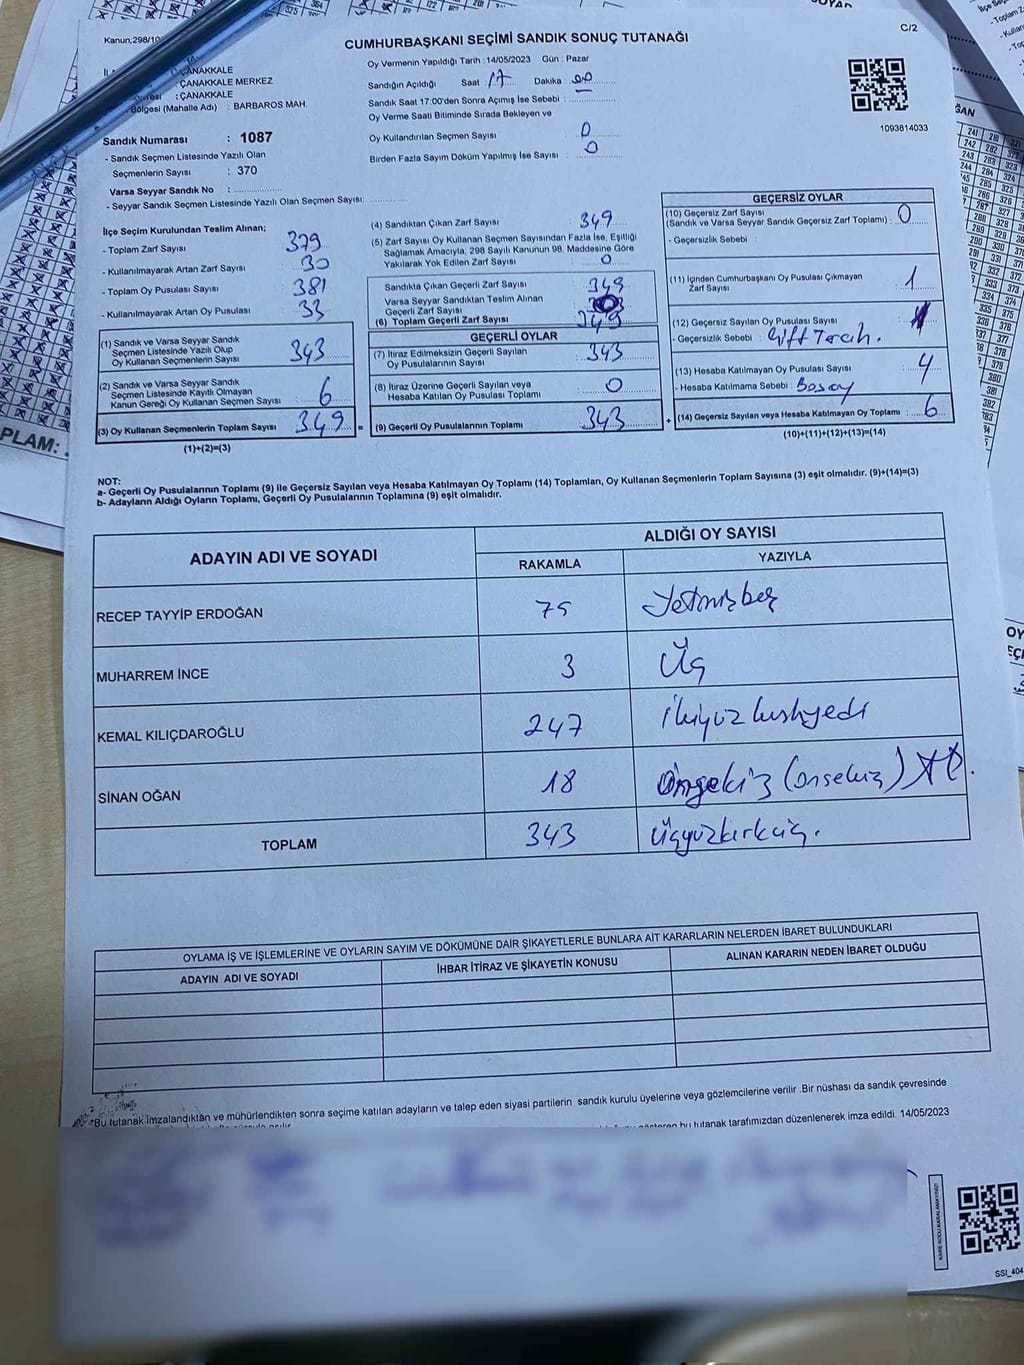 Kanun:298/10
CUMHURBAŞKANI SEÇİMİ SANDIK SONUÇ TUTANAĞI
C/2
: ÇANAKKALE
: ÇANAKKALE MERKEZ
: ÇANAKKALE
Bölgesi (Mahalle Adı) : BARBAROS MAH.
Sandık Numarası : 1087
- Sandık Seçmen Listesinde Yazılı Olan
Seçmenlerin Sayısı : 370
Varsa Seyyar Sandık No :
- Seyyar Sandık Seçmen Listesinde Yazılı Olan Seçmen Sayısı:
Oy Vermenin Yapıldığı Tarih : 14/05/2023 Gün : Pazar
Sandığın Açıldığı Saat 17 Dakika : 00
Sandık Saat 17:00'den Sonra Açımış İse Sebebi :
Oy Verme Saati Bitiminde Sırada Bekleyen ve
Oy Kullandırılan Seçmen Sayısı : 0
Birden Fazla Sayım Döküm Yapılmış İse Sayısı : 0
1093814033
İlçe Seçim Kurulundan Teslim Alınan;
- Toplam Zarf Sayısı 379
- Kullanılmayarak Artan Zarf Sayısı : 30
- Toplam Oy Pusulası Sayısı : 381
- Kullanılmayarak Artan Oy Pusulası : 33
(1) Sandık ve Varsa Seyyar Sandık
Seçmen Listesinde Yazılı Olup
Oy Kullanan Seçmenlerin Sayısı : 343
(2) Sandık ve Varsa Seyyar Sandık
Seçmen Listesinde Kayıtlı Olmayan
Kanun Gereği Oy Kullanan Seçmen Sayısı : 6
(3) Oy Kullanan Seçmenlerin Toplam Sayısı : 349 =
(1)+(2)=(3)
(4) Sandıktan Çıkan Zarf Sayısı : 349
(5) Zarf Sayısı Oy Kullanan Seçmen Sayısından Fazla İse, Eşitliği
Sağlamak Amacıyla, 298 Sayılı Kanunun 98. Maddesine Göre
Yakılarak Yok Edilen Zarf Sayısı : 0
Sandıkta Çıkan Geçerli Zarf Sayısı : 349
Varsa Seyyar Sandıktan Teslim Alınan
Geçerli Zarf Sayısı
(6) Toplam Geçerli Zarf Sayısı : 349
GEÇERLİ OYLAR
(7) İtiraz Edilmeksizin Geçerli Sayılan
Oy Pusulalarının Sayısı : 343
(8) İtiraz Üzerine Geçerli Sayılan veya
Hesaba Katılan Oy Pusulası Toplamı : 0
(9) Geçerli Oy Pusulalarının Toplamı : 343 +
GEÇERSİZ OYLAR
(10) Geçersiz Zarf Sayısı
(Sandık ve Varsa Seyyar Sandık Geçersiz Zarf Toplamı) : 0
- Geçersizlik Sebebi :
(11) İçinden Cumhurbaşkanı Oy Pusulası Çıkmayan
Zarf Sayısı : 1
(12) Geçersiz Sayılan Oy Pusulası Sayısı : 1
- Geçersizlik Sebebi : Çift Tercih.
(13) Hesaba Katılmayan Oy Pusulası Sayısı : 4
- Hesaba Katılmama Sebebi : Boş oy
(14) Geçersiz Sayılan veya Hesaba Katılmayan Oy Toplamı : 6
(10)+(11)+(12)+(13)=(14)
NOT:
a- Geçerli Oy Pusulalarının Toplamı (9) ile Geçersiz Sayılan veya Hesaba Katılmayan Oy Toplamı (14) Toplamları, Oy Kullanan Seçmenlerin Toplam Sayısına (3) eşit olmalıdır. (9)+(14)=(3)
b- Adayların Aldığı Oyların Toplamı, Geçerli Oy Pusulalarının Toplamına (9) eşit olmalıdır.
ADAYIN ADI VE SOYADI
ALDIĞI OY SAYISI
RAKAMLA YAZIYLA
RECEP TAYYİP ERDOĞAN 75 Yetmişbeş
MUHARREM İNCE 3 Üç
KEMAL KILIÇDAROĞLU 247 İkiyüzkırkyedi
SİNAN OĞAN 18 Onsekiz (onsekiz)
TOPLAM 343 Üçyüzkırküç.
OYLAMA İŞ VE İŞLEMLERİNE VE OYLARIN SAYIM VE DÖKÜMÜNE DAİR ŞİKAYETLERLE BUNLARA AİT KARARLARIN NELERDEN İBARET BULUNDUKLARI
ADAYIN ADI VE SOYADI İHBAR İTİRAZ VE ŞİKAYETİN KONUSU ALINAN KARARIN NEDEN İBARET OLDUĞU
*Bu tutanak imzalandıktan ve mühürlendikten sonra seçime katılan adayların ve talep eden siyasi partilerin sandık kurulu üyelerine veya gözlemcilerine verilir .Bir nüshası da sandık çevresinde
gösteren bu tutanak tarafımızdan düzenlenerek imza edildi. 14/05/2023
KARE KODU KARALAMAYINIZ!
SSI_404
PLAM: